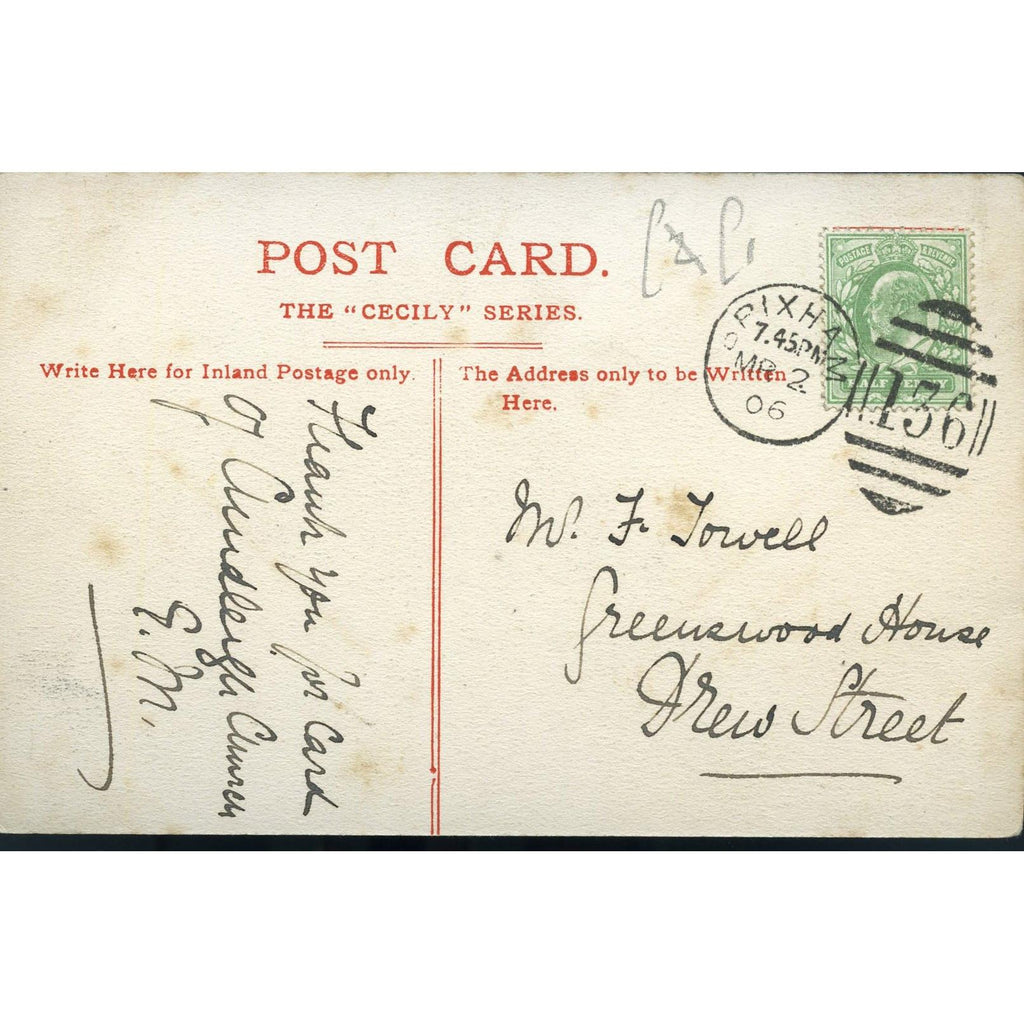 POST CARD.
THE "CECILY" SERIES.
Write Here for Inland Postage only.
The Address only to be Written
Here.
POSTAGE & REVENUE
BRIXHAM
7.45PM
MR 2
06
136
Thank you for Card
of Church
E. M.
Mr. F. Towell
Greenswood House
Drew Street